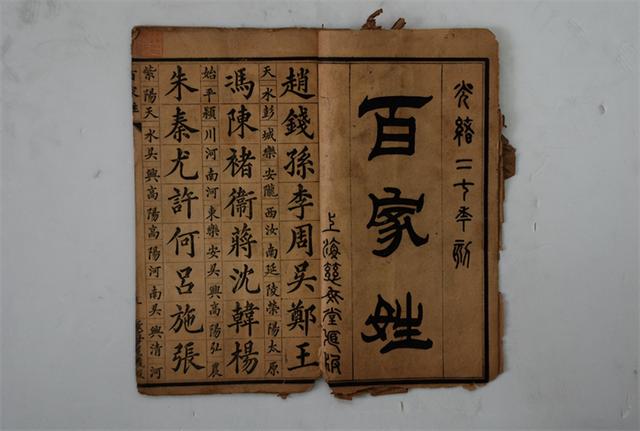 光緒二七年刻
百家姓
上海慈母堂版
趙錢孫李周吳鄭王
天水彭城樂安隴西汝南延陵滎陽太原
馮陳褚衞蔣沈韓楊
始平潁川河南河東樂安吳興高陽弘農
朱秦尤許何呂施張
紫陽天水吳興高陽高陽河南吳興清河
百家姓